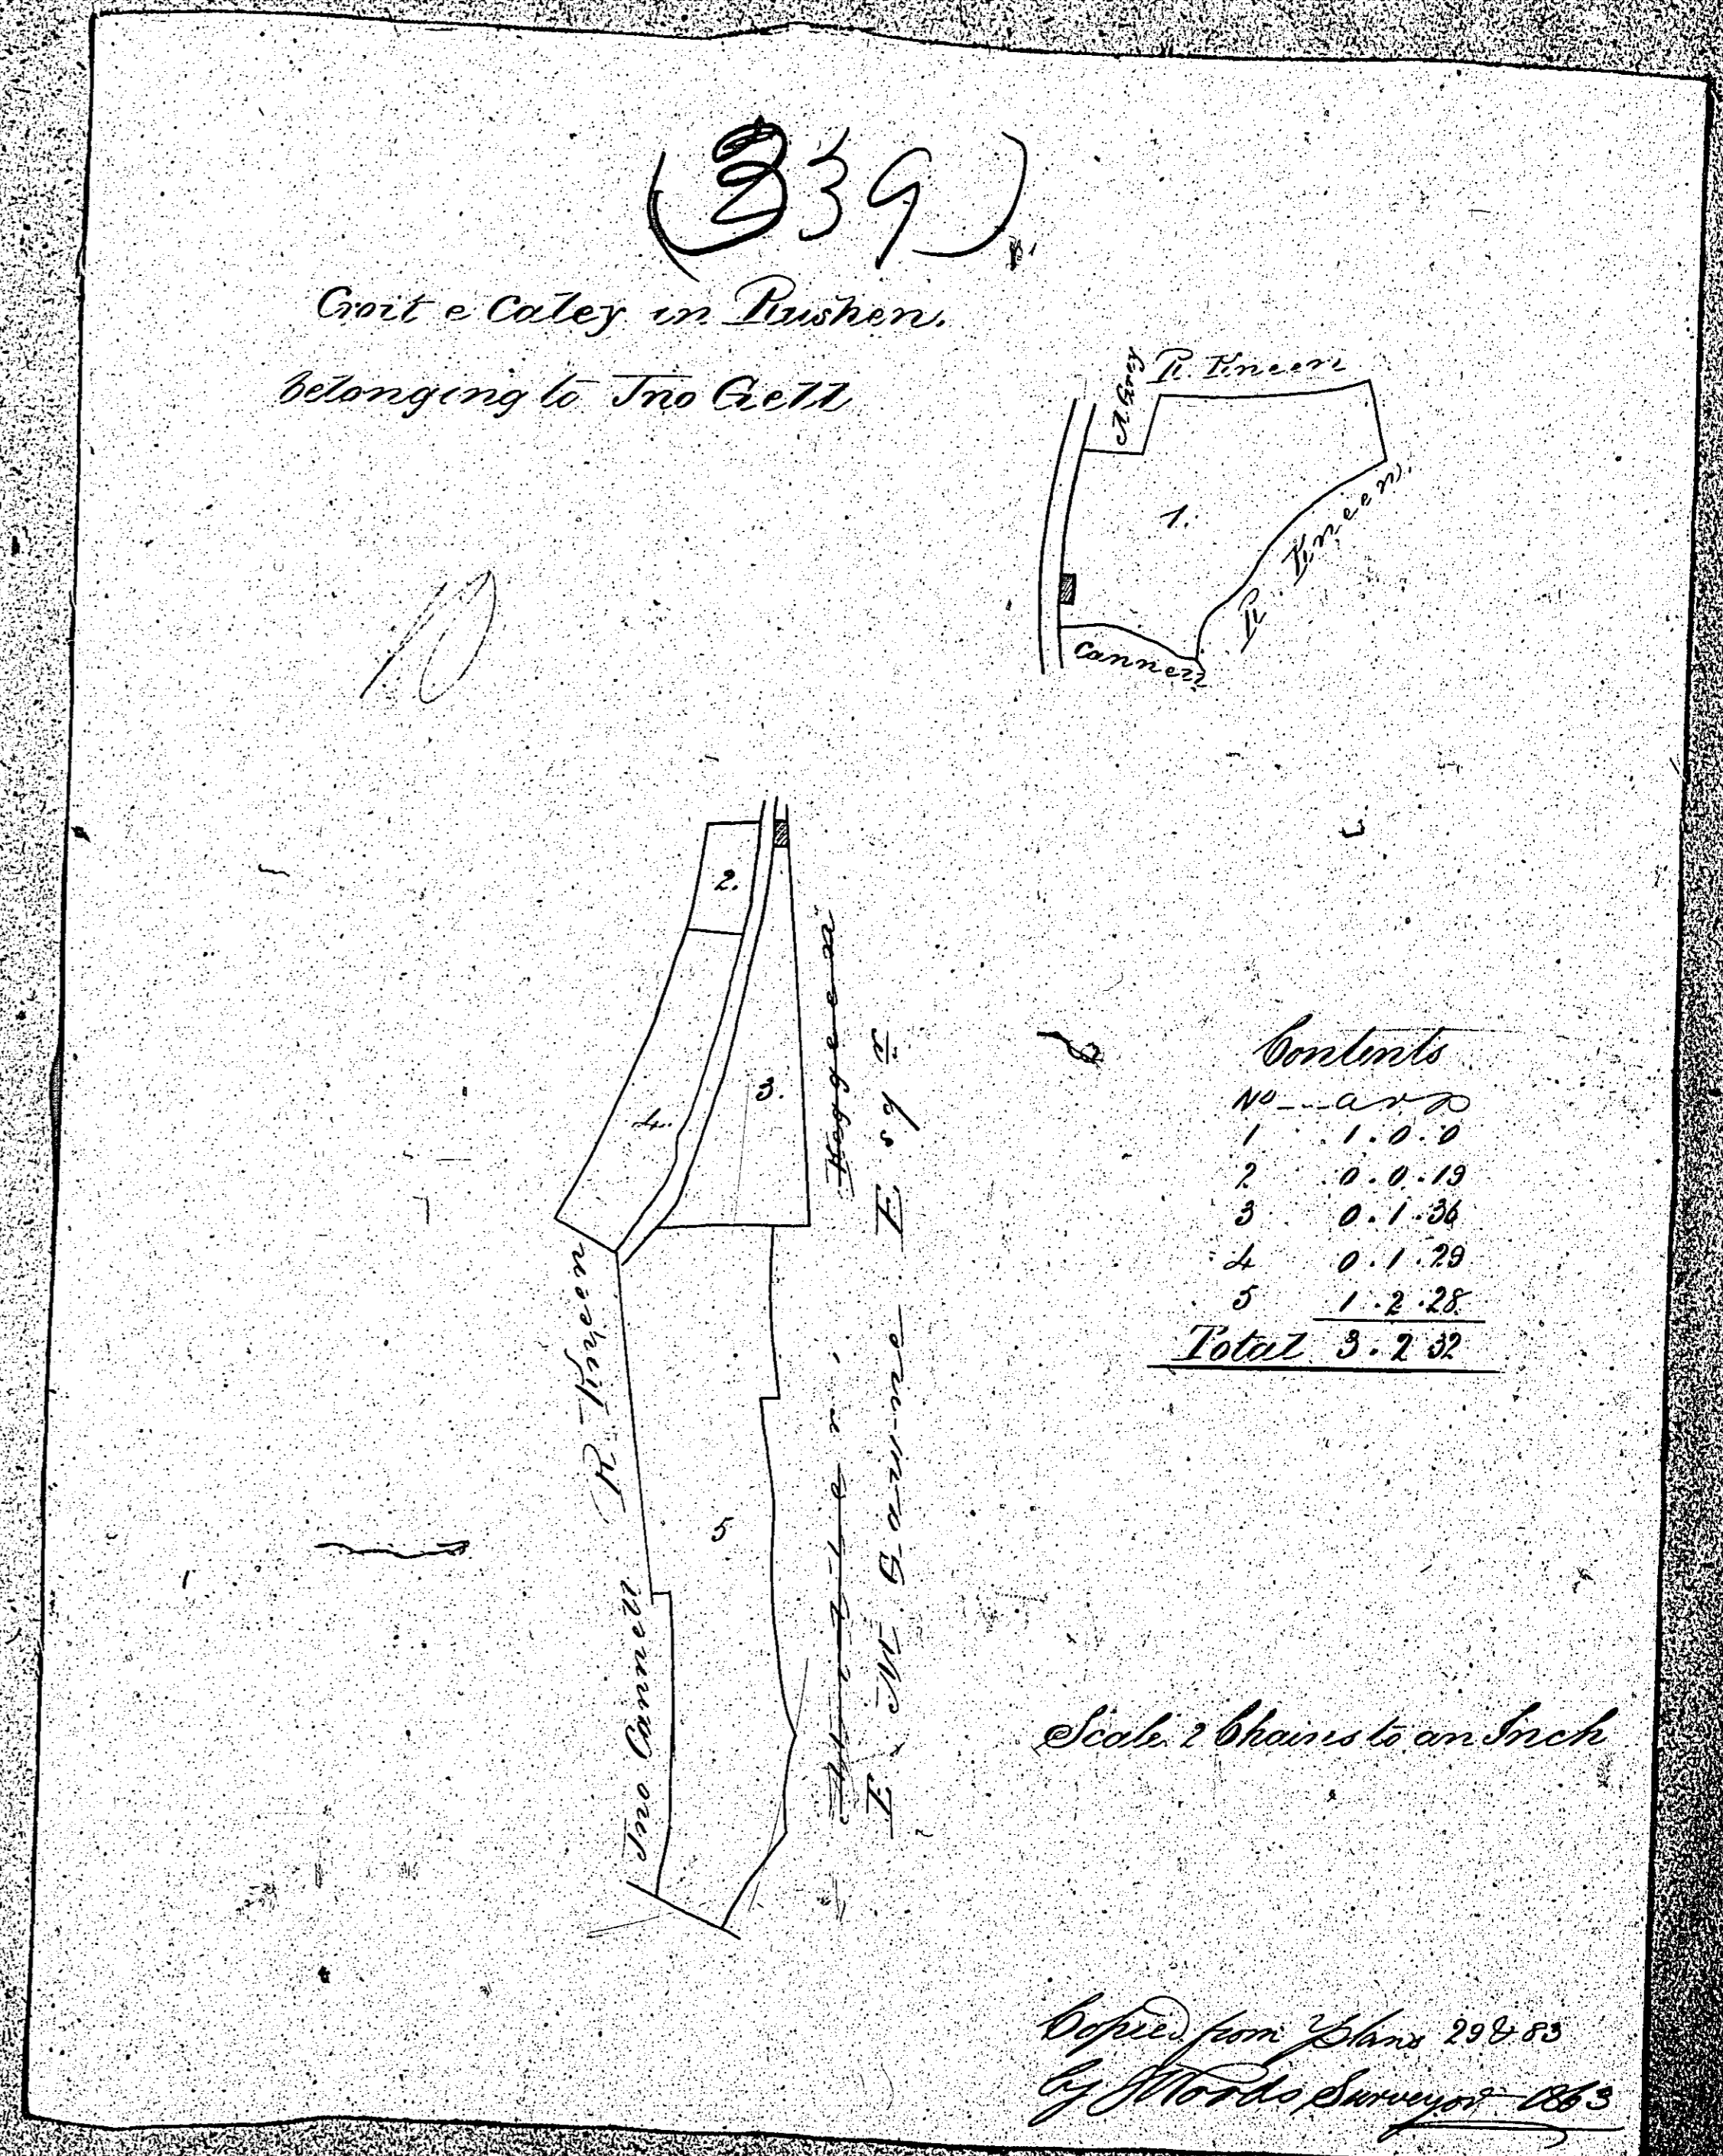 (339)
Croit e Caley in Rushen.
belonging to Jno Gell
A Grey
R. Kneen
1.
R. Kneen.
Cannell
2.
3.
4.
Keggeen
R Kneen
5
Jno Cannell
E. M. Gawne Esqr
Contents
No --- a r p
1 1.0.0
2 0.0.19
3 0.1.36
4 0.1.29
5 1.2.28
Total 3.2 32
Scale 2 Chains to an Inch
Copied from Plans 29 & 83
by J Woods Surveyor 1863